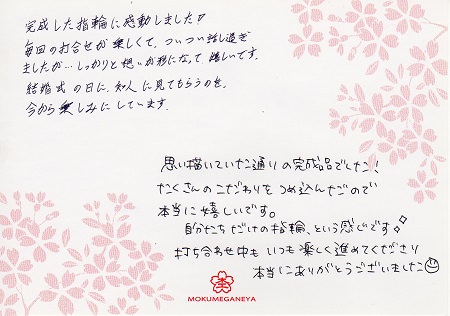 完成した指輪に感動しました♡
毎回の打合せが楽しくて、ついつい話し過ぎ
ましたが…しっかりと想いが形になって嬉しいです。
結婚式の日に、知人に見てもらうのを、
今から楽しみにしています。
思い描いていた通りの完成品でした!
たくさんのこだわりをつめ込んだので
本当に嬉しいです。
自分たちだけの指輪、という感じです✧
打ち合わせ中もいつも楽しく進めてくださり
本当にありがとうございました☺
杢
MOKUMEGANEYA